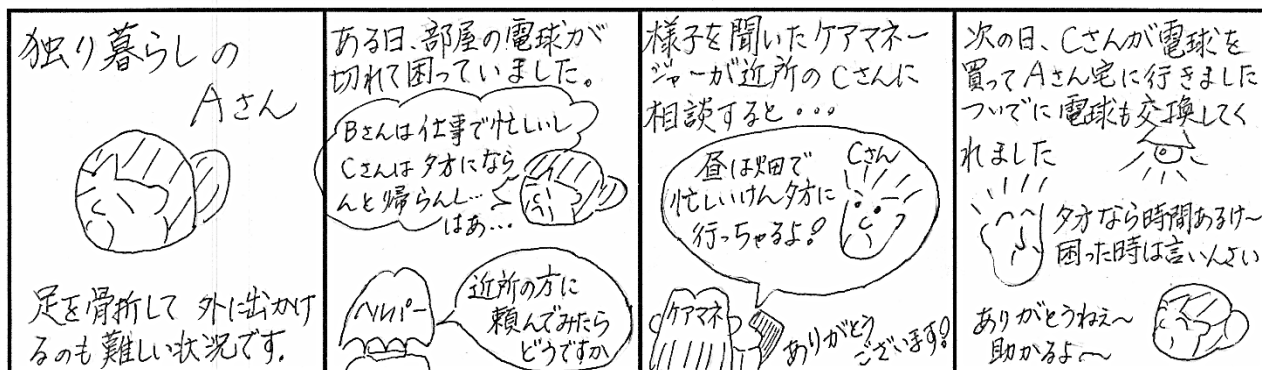 独り暮らしの
Aさん
足を骨折して外に出かけ
るのも難しい状況です。
ある日、部屋の電球が
切れて困っていました。
Bさんは仕事で忙しいし
Cさんは夕方になら
んと帰らんし…
はあ…
ヘルパー
近所の方に
頼んでみたら
どうですか
様子を聞いたケアマネー
ジャーが近所のCさんに
相談すると・・・
Cさん
昼は畑で
忙しいけん夕方に
行っちゃるよ!
ケアマネ
ありがとう
ございます!
次の日、Cさんが電球を
買ってAさん宅に行きました
ついでに電球も交換してく
れました
夕方なら時間あるけ〜
困った時は言いんさい
ありがとうねぇ〜
助かるよ〜